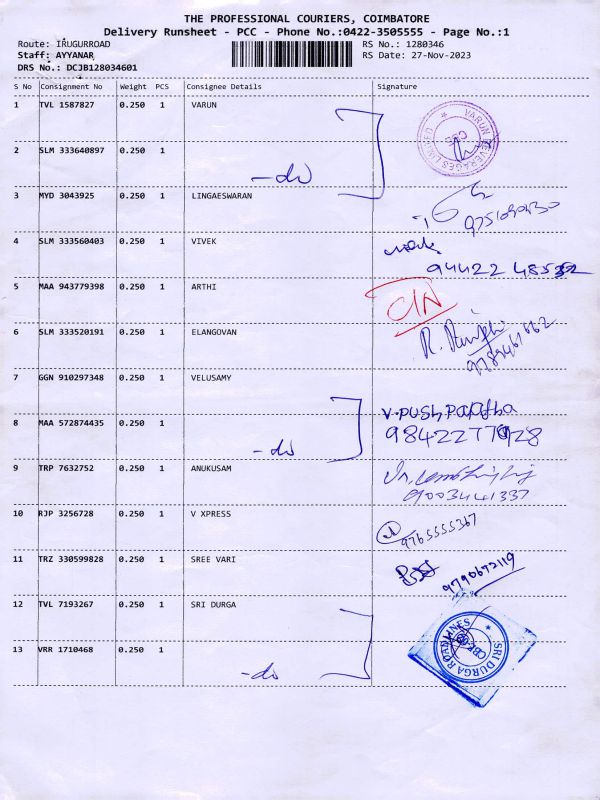 THE PROFESSIONAL COURIERS, COIMBATORE
Delivery Runsheet - PCC - Phone No.:0422-3505555 - Page No.:1
Route: IRUGURROAD
RS No.: 1280346
Staff: AYYANAR
RS Date: 27-Nov-2023
DRS No.: DCJB128034601
S No Consignment No Weight PCS Consignee Details Signature
1 TVL 1587827 0.250 1 VARUN
VARUN BEVERAGES LIMITED
2 SLM 333640897 0.250 1
-do
3 MYD 3043925 0.250 1 LINGAESWARAN
4 SLM 333560403 0.250 1 VIVEK
94422 48532
5 MAA 943779398 0.250 1 ARTHI
6 SLM 333520191 0.250 1 ELANGOVAN
7 GGN 910297348 0.250 1 VELUSAMY
V-PUSHPARATHA
8 MAA 572874435 0.250 1
-do
9 TRP 7632752 0.250 1 ANUKUSAM
9003441337
10 RJP 3256728 0.250 1 V XPRESS
9765555367
11 TRZ 330599828 0.250 1 SREE VARI
9790672119
12 TVL 7193267 0.250 1 SRI DURGA
SRI DURGA ROADLINES
13 VRR 1710468 0.250 1
-do